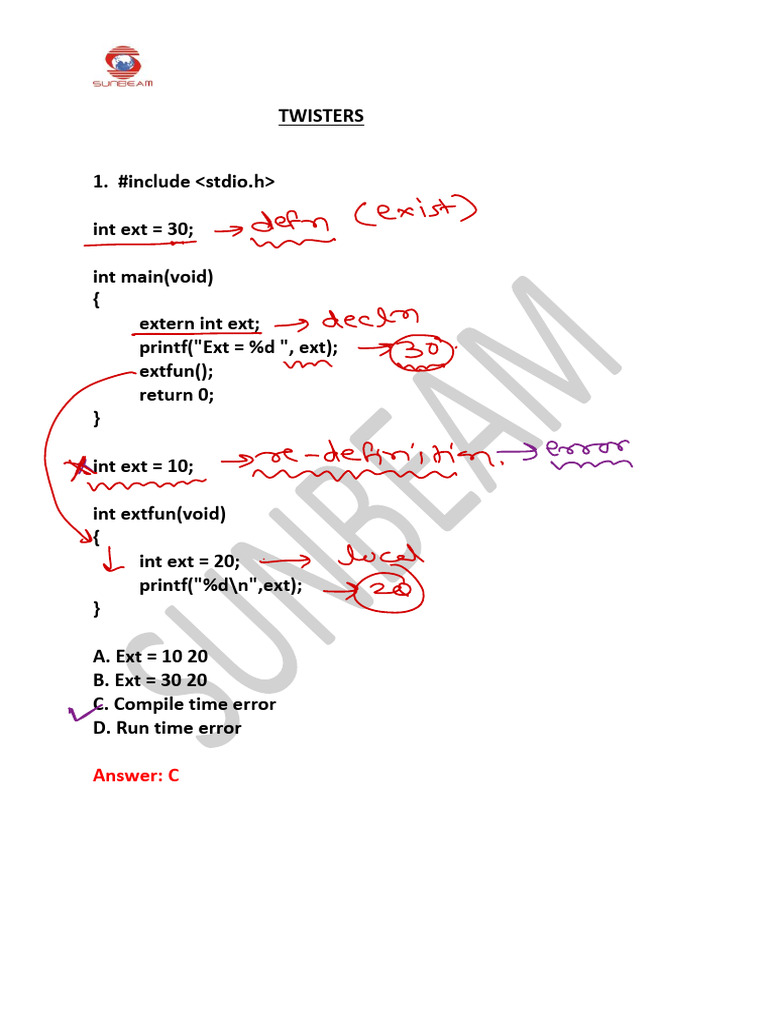 SUNBEAM
TWISTERS
1. #include <stdio.h>
int ext = 30; → defn (exist)
int main(void)
{
extern int ext; → decln
printf("Ext = %d ", ext); → 30
extfun();
return 0;
}
int ext = 10; → re-definition. → error
int extfun(void)
{
int ext = 20; → local
printf("%d\n",ext); → 20
}
A. Ext = 10 20
B. Ext = 30 20
C. Compile time error
D. Run time error
Answer: C
SUNBEAM